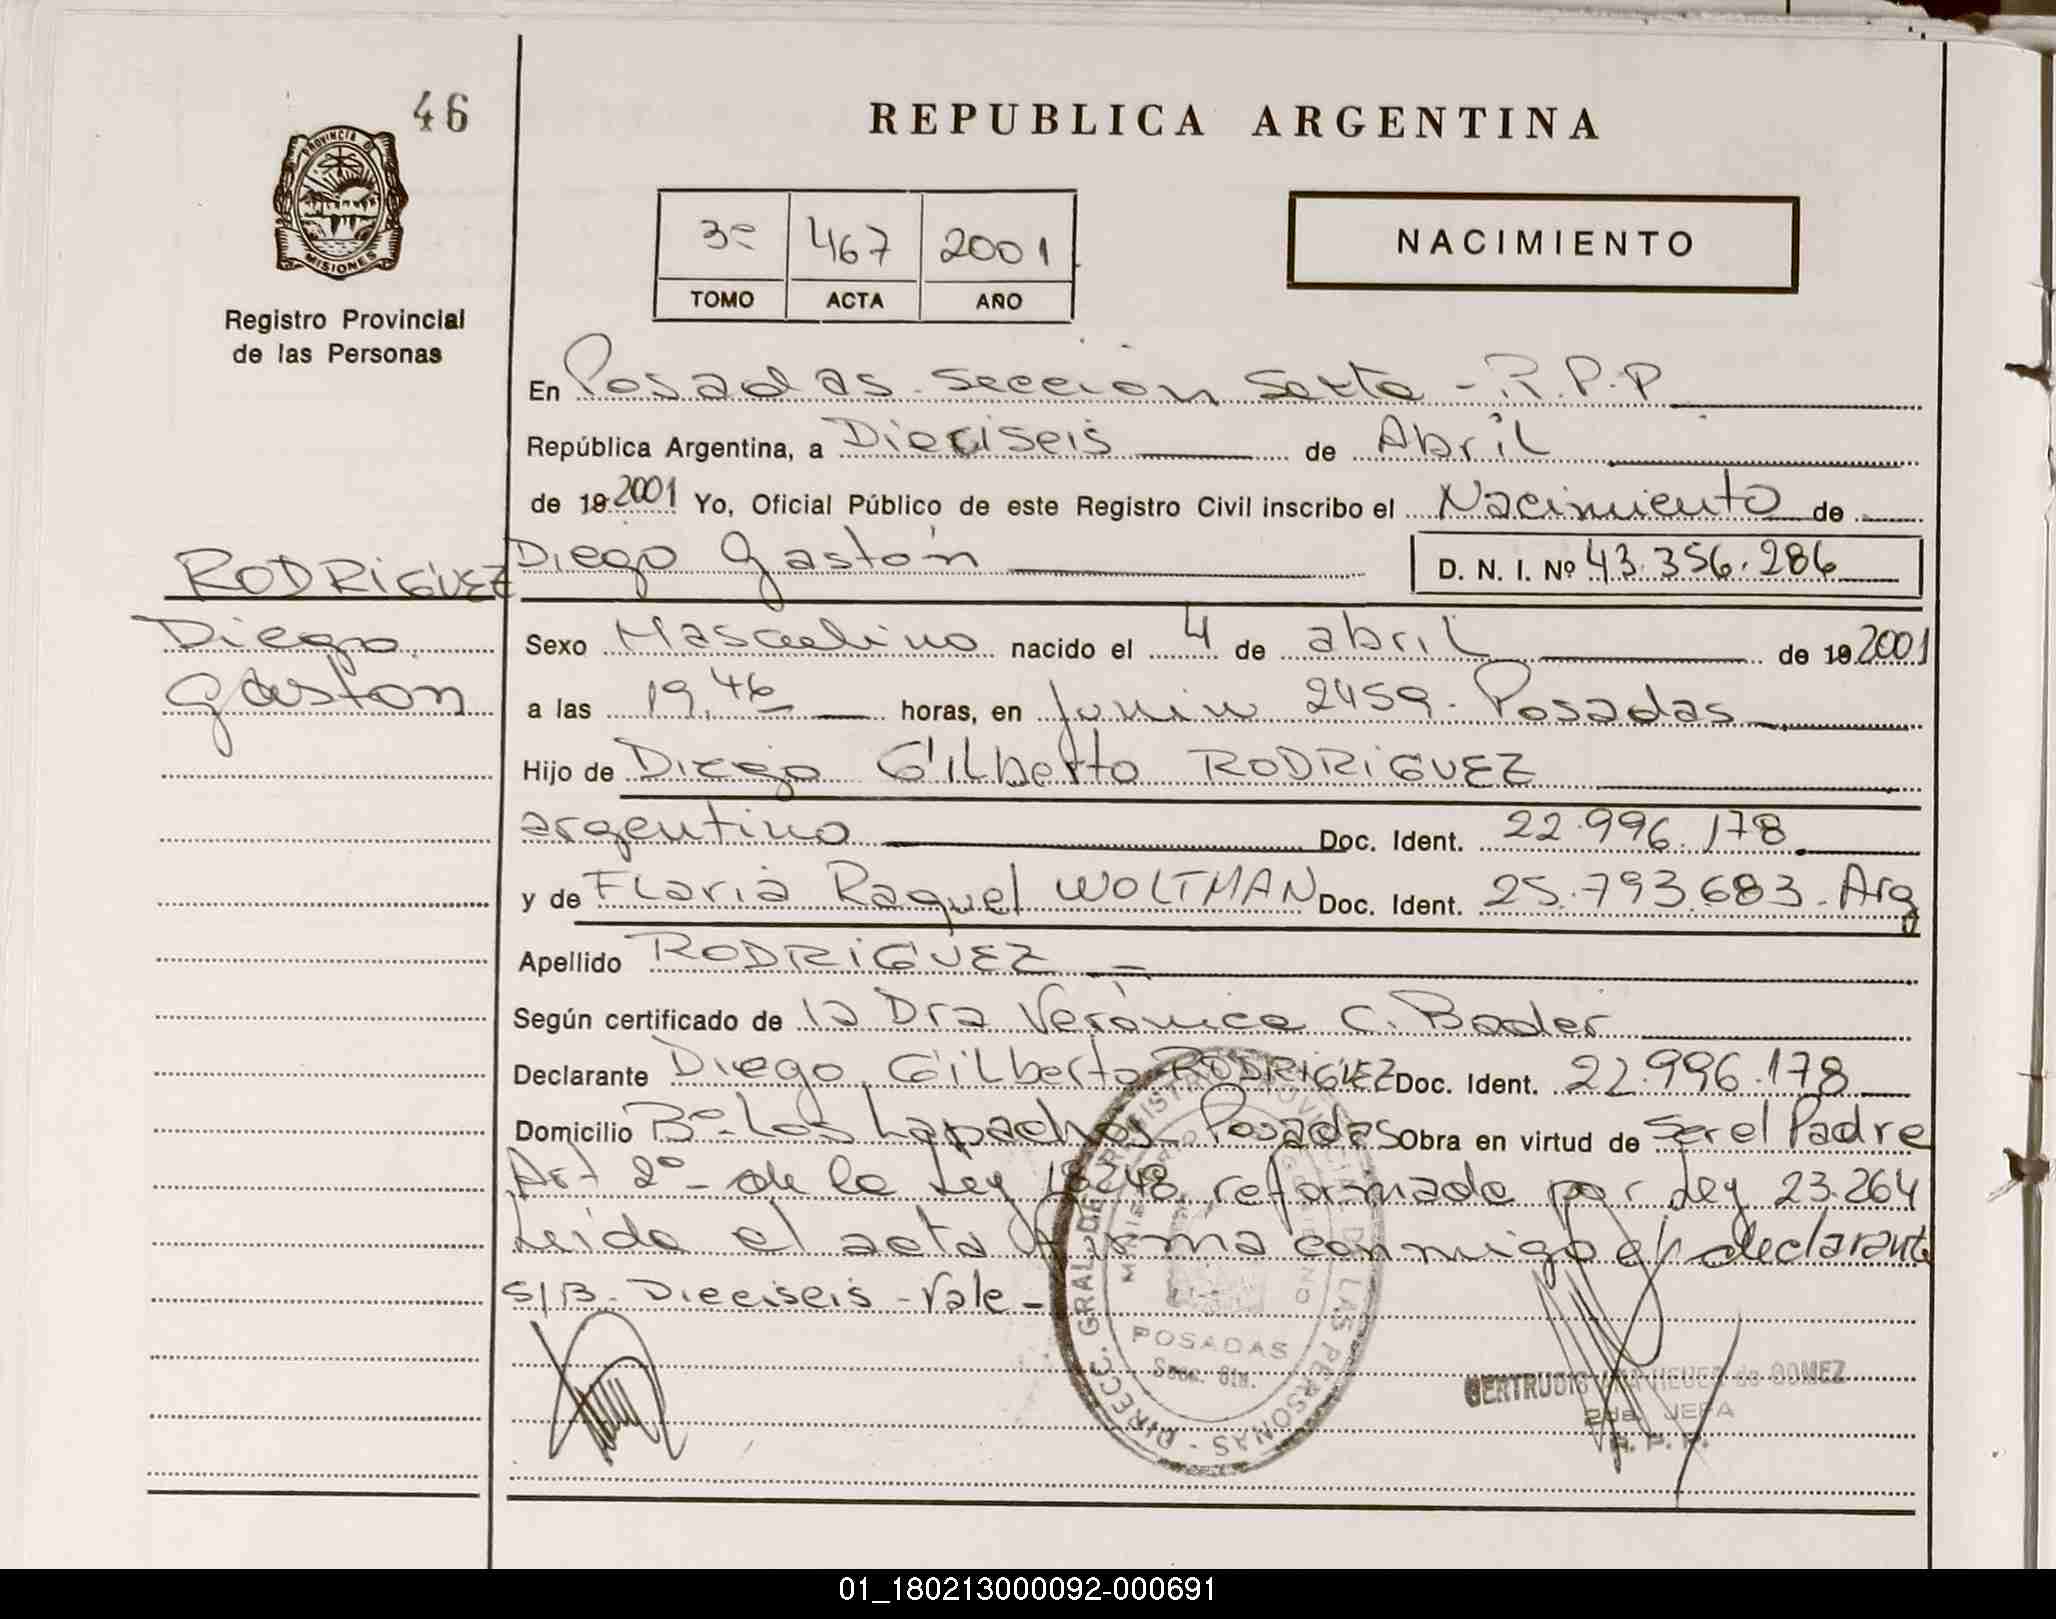 46
PROVINCIA DE
MISIONES
Registro Provincial
de las Personas
REPUBLICA ARGENTINA
3º 467 2001
TOMO ACTA AÑO
NACIMIENTO
En Posadas Seccion Sexta - R.P.P
República Argentina, a Dieciseis de Abril
de 19 2001 Yo, Oficial Público de este Registro Civil inscribo el Nacimiento de
RODRIGUEZ Diego Gastón D. N. I. Nº 43.356.286
Diego Sexo Masculino nacido el 4 de abril de 19 2001
Gaston a las 19,46 horas, en Junin 2459. Posadas
Hijo de Diego Gilberto RODRIGUEZ
argentino Doc. Ident. 22.996.178
y de FLavia Raquel WOLTMAN Doc. Ident. 25.793.683. Arg
Apellido RODRIGUEZ
Según certificado de la Dra Verónica C. Bader
Declarante Diego Gilberto RODRIGUEZ Doc. Ident. 22.996.178
Domicilio Bº Los Lapachos Posadas Obra en virtud de Ser el Padre
Art 2º de la Ley 18248 reformada por Ley 23.264
Leida el acta firma conmigo el declarante
S/B. Dieciseis - Vale -
DIRECC. GRAL. DE REGISTRO PROVINCIAL DE LAS PERSONAS
POSADAS
Secc. 6ta.
GERTRUDIS de GOMEZ
2da. JEFA
R. P. P.
01_180213000092-000691